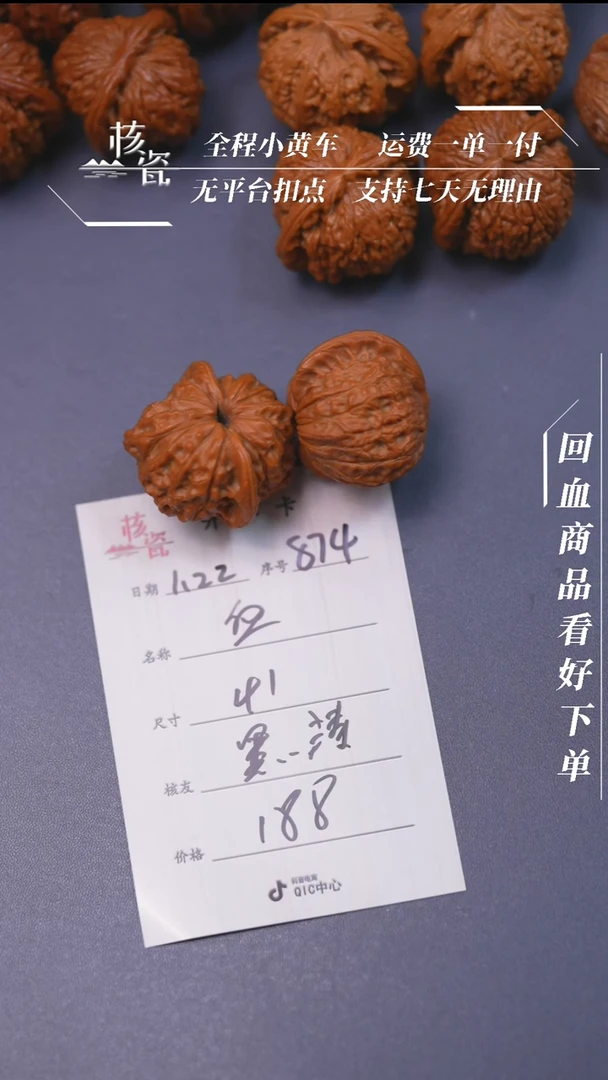 核瓷
全程小黄车 运费一单一付
无平台扣点 支持七天无理由
回血商品看好下单
核瓷
卡
日期 1.22 序号 874
名称
尺寸 41
核友
价格 188
抖音电商
QIC中心